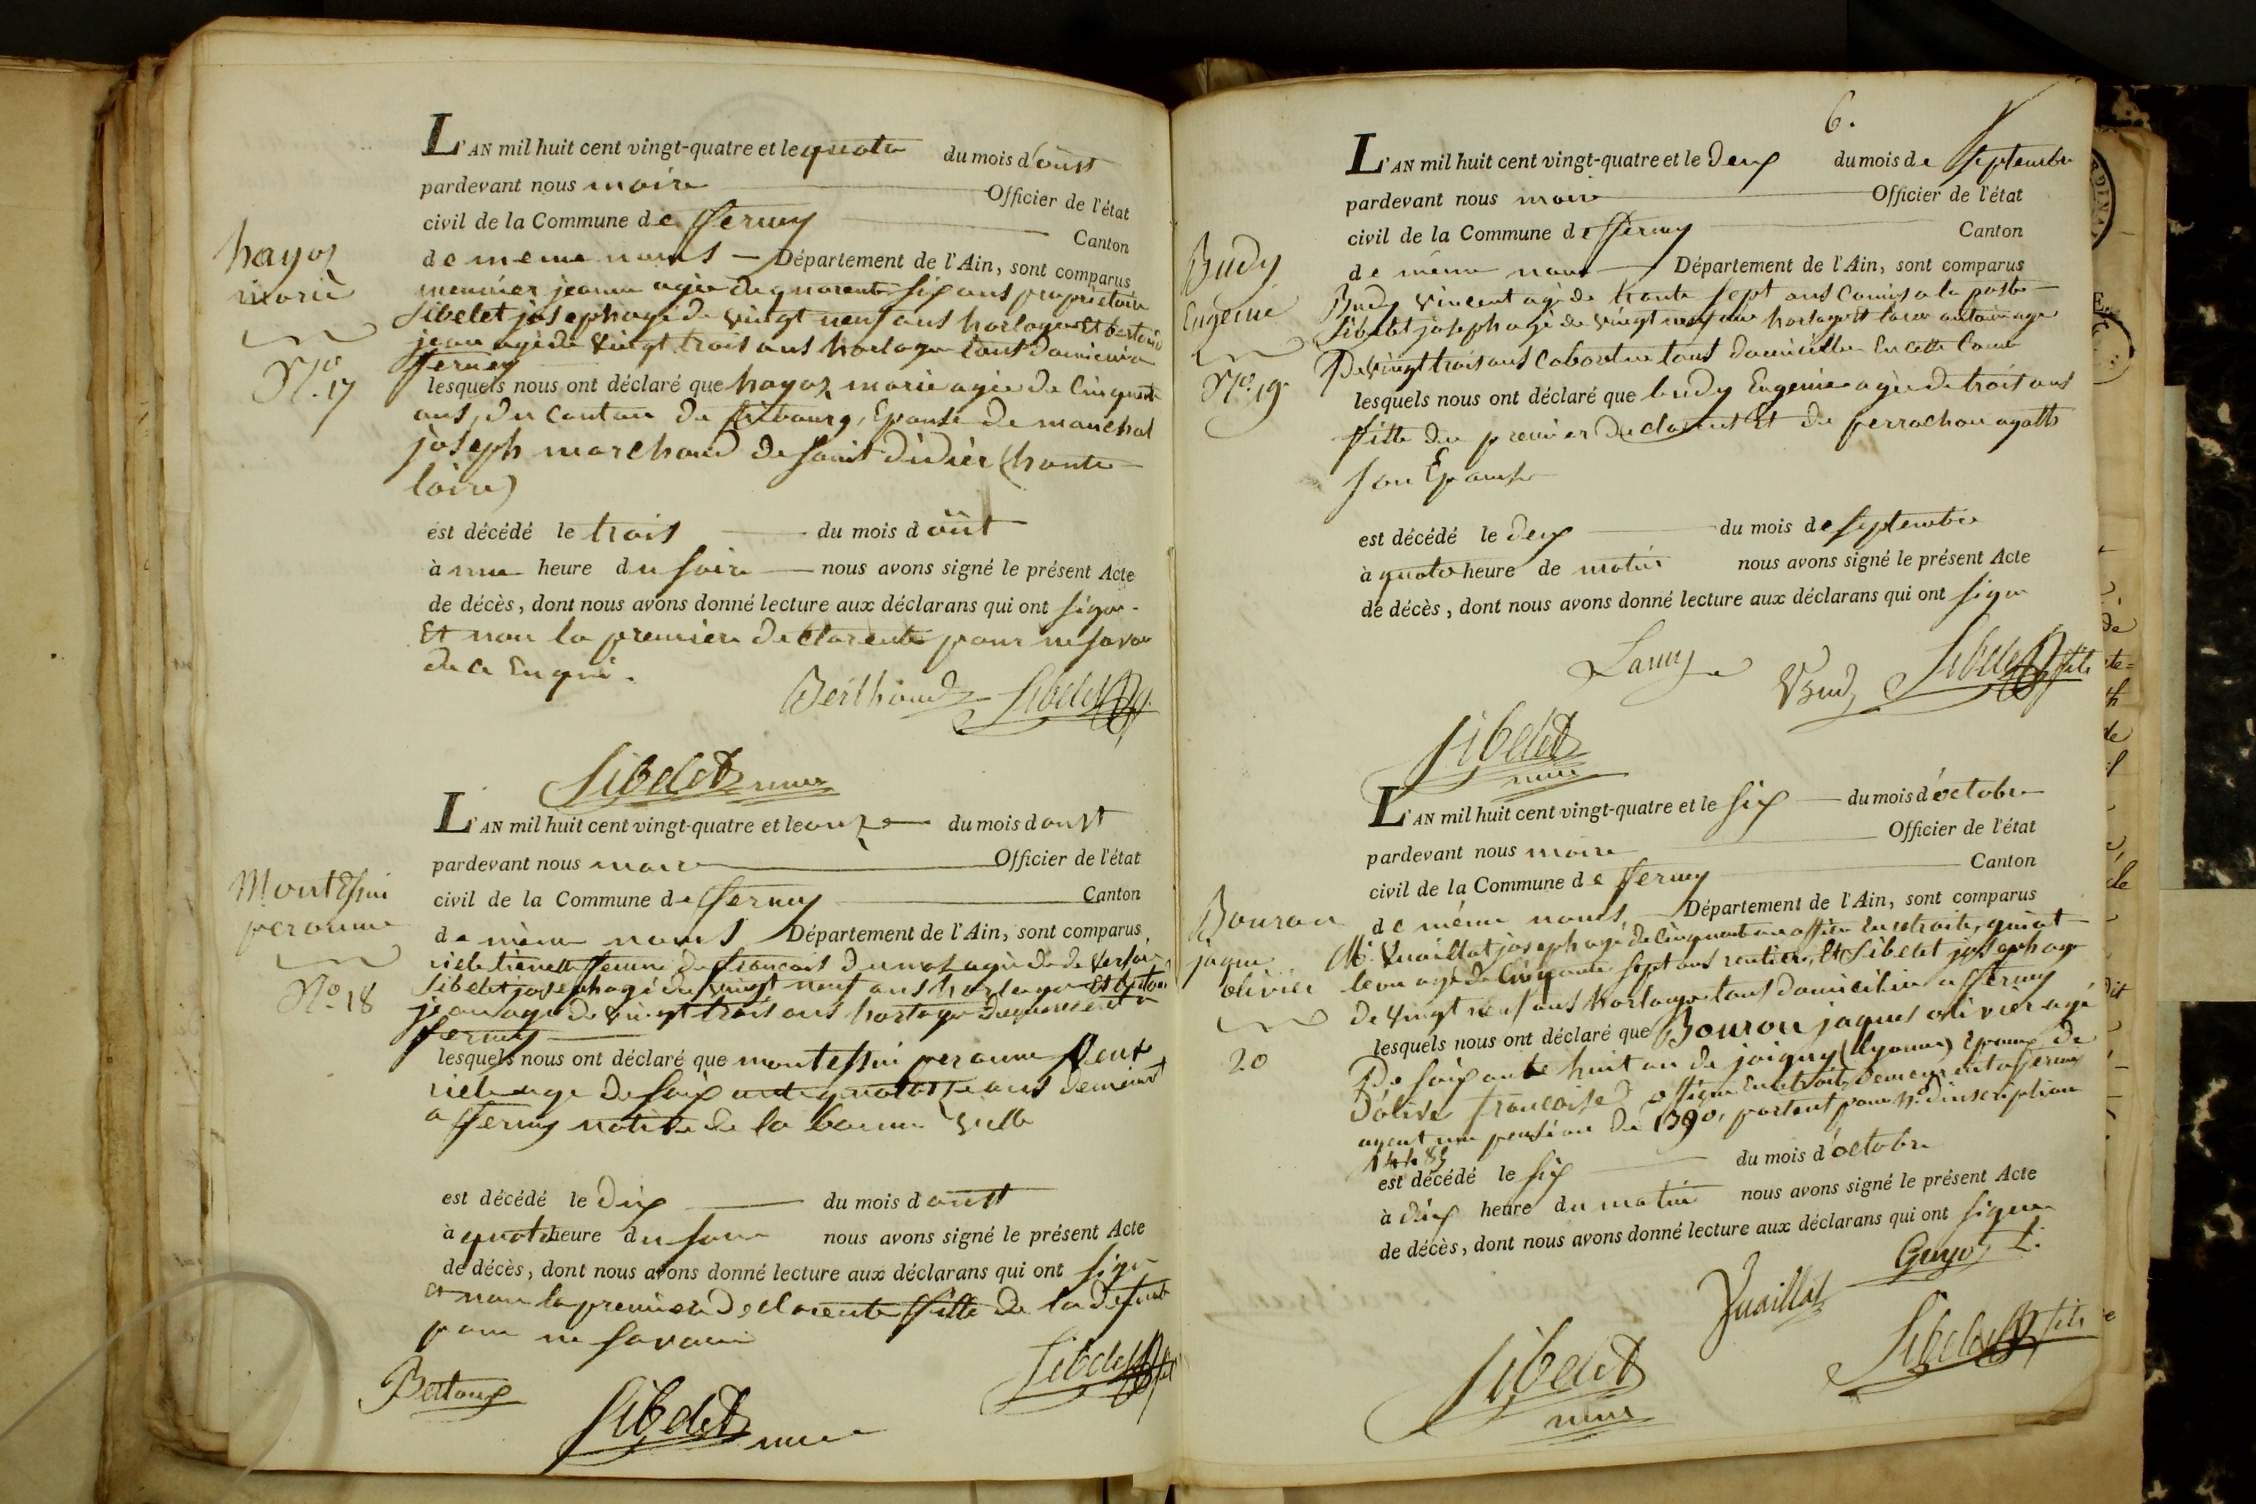 L'AN mil huit cent vingt-quatre et le quatre du mois d'oust
pardevant nous maire Officier de l'état
civil de la Commune de fferney Canton
de meme noms Département de l'Ain, sont comparus
meunier jeanne agée de quarente six ans propriétaire
Sibelet joseph agé de vingt neuf ans horloger Et
jean agé de vingt trois ans horloger tous
fferney
hayoz
marie
No. 17
lesquels nous ont déclaré que hayoz marie agée de Cinquente
ans, du Canton de fribourg, Epouse de
joseph marchand de saint didier (haute
loire)
est décédé le trois du mois d oût
à une heure du soire nous avons signé le présent Acte
de décès, dont nous avons donné lecture aux déclarans qui ont signe.
Et non la premiere declarente pour ne savoir
de ce Enquis.
Berthoud Sibelet
Sibelet maire
L'AN mil huit cent vingt-quatre et le onze du mois d oust
pardevant nous maire Officier de l'état
civil de la Commune de fferney Canton
de même noms Département de l'Ain, sont comparus
femme de francois agée de
Sibelet joseph agé de vingt neuf ans horloger Et
jean agé de vingt trois ans horloger
fferney
Montessui
peronne
No. 18
lesquels nous ont déclaré que montessui peronne
age de soixante quatorze ans demeurt
a fferney native de la bonne ville
est décédé le dix du mois d oust
à quatre heure du soire nous avons signé le présent Acte
de décès, dont nous avons donné lecture aux déclarans qui ont signe
et non la premiere declarente fille de la defunte
pour ne savoir
Sibelet
Sibelet maire
6.
L'AN mil huit cent vingt-quatre et le deux du mois de septembre
pardevant nous maire Officier de l'état
civil de la Commune de fferney Canton
de même nom Département de l'Ain, sont comparus
Budy vincent agé de trente sept ans Comis a la poste
Sibelet joseph agé de vingt neuf ans horloger et antoine age
De vingt trois ans tous domicillie En cette Comne
Budy
Eugenie
No. 19.
lesquels nous ont déclaré que budy Eugenie agée de trois ans
fille du premier declarent Et de perrachon agathe
son Epouse
est décédé le deux du mois de septembre
à quatre heure de matin nous avons signé le présent Acte
de décès, dont nous avons donné lecture aux déclarans qui ont signe
Lamy VBudy Sibelet fils
Sibelet
maire
L'AN mil huit cent vingt-quatre et le six du mois d'octobre
pardevant nous maire Officier de l'état
civil de la Commune de fferney Canton
de même noms Département de l'Ain, sont comparus
Mr. Vuaillat joseph agé de Cinquente an officier En retraite, guiot
leon agé de Cinquante sept ans rentier, Et Sibelet joseph age
de vingt neuf ans horloger tous domicilié a fferney
Bouron
jaque
olivier
20
lesquels nous ont déclaré que Bouron jaques olivier agé
De soixante huit an de joigny (lyonne) Epoux de
D'olive francoise officier En retraite, demeurent a fferney
ayent une pension de 1390, portent pour No. d'inscription
14485
est décédé le six du mois d'octobre
à dix heure du matin nous avons signé le présent Acte
de décès, dont nous avons donné lecture aux déclarans qui ont signer
Vuaillat Guyot L.
Sibelet fils
Sibelet
maire